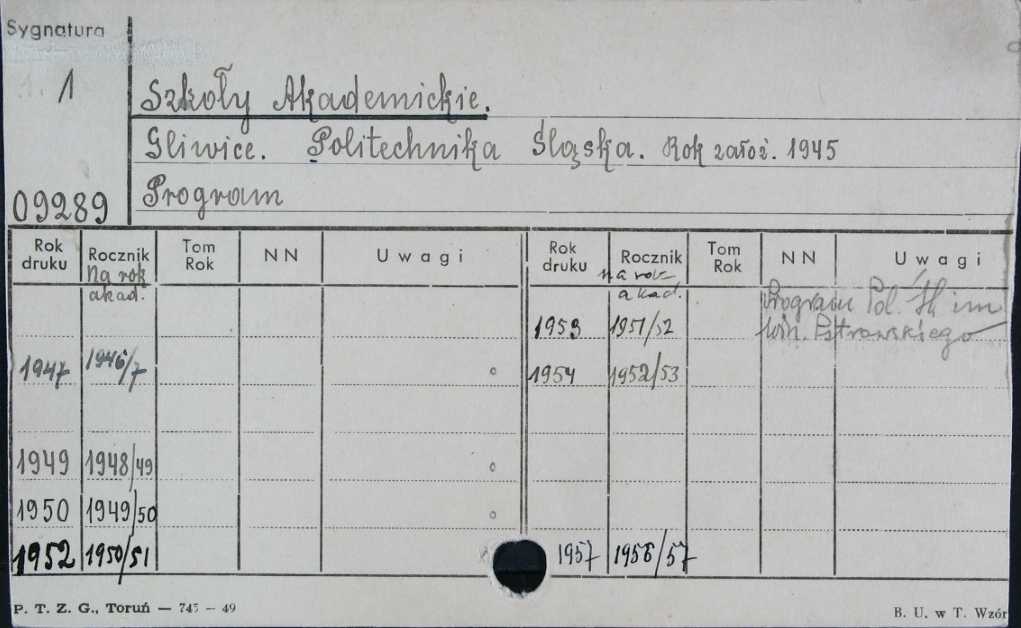 Sygnatura
1
Szkoły Akademickie.
Gliwice. Politechnika Śląska. Rok założ. 1945
09289
Program
Rok druku Rocznik Tom Rok NN Uwagi Rok druku Rocznik Tom Rok NN Uwagi
Na rok akad. na rok akad.
1953 1951/52 Program Pol. Śl im
Win. Pstrowskiego
1947 1946/7 1954 1952/53
1949 1948/49
1950 1949/50
1952 1950/51 1957 1956/57
P. T. Z. G., Toruń — 745 — 49 B. U. w T. Wzór